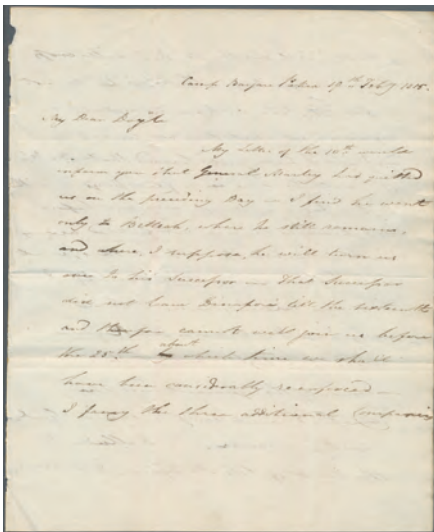 Camp 19th Feby 1815.
My Dear Doyle
My Letter of the 10th would
inform you that General Marley had quitted
us on the preceding Day — I find he went
only to Bettiah, where he still remains,
and I suppose, he will turn us
over to his Successor — That Successor
did not leave Dinapore till the sixteenth
and cannot well join us before
the 25th about which time we shall
have been considerably reinforced —
I the three additional Companies